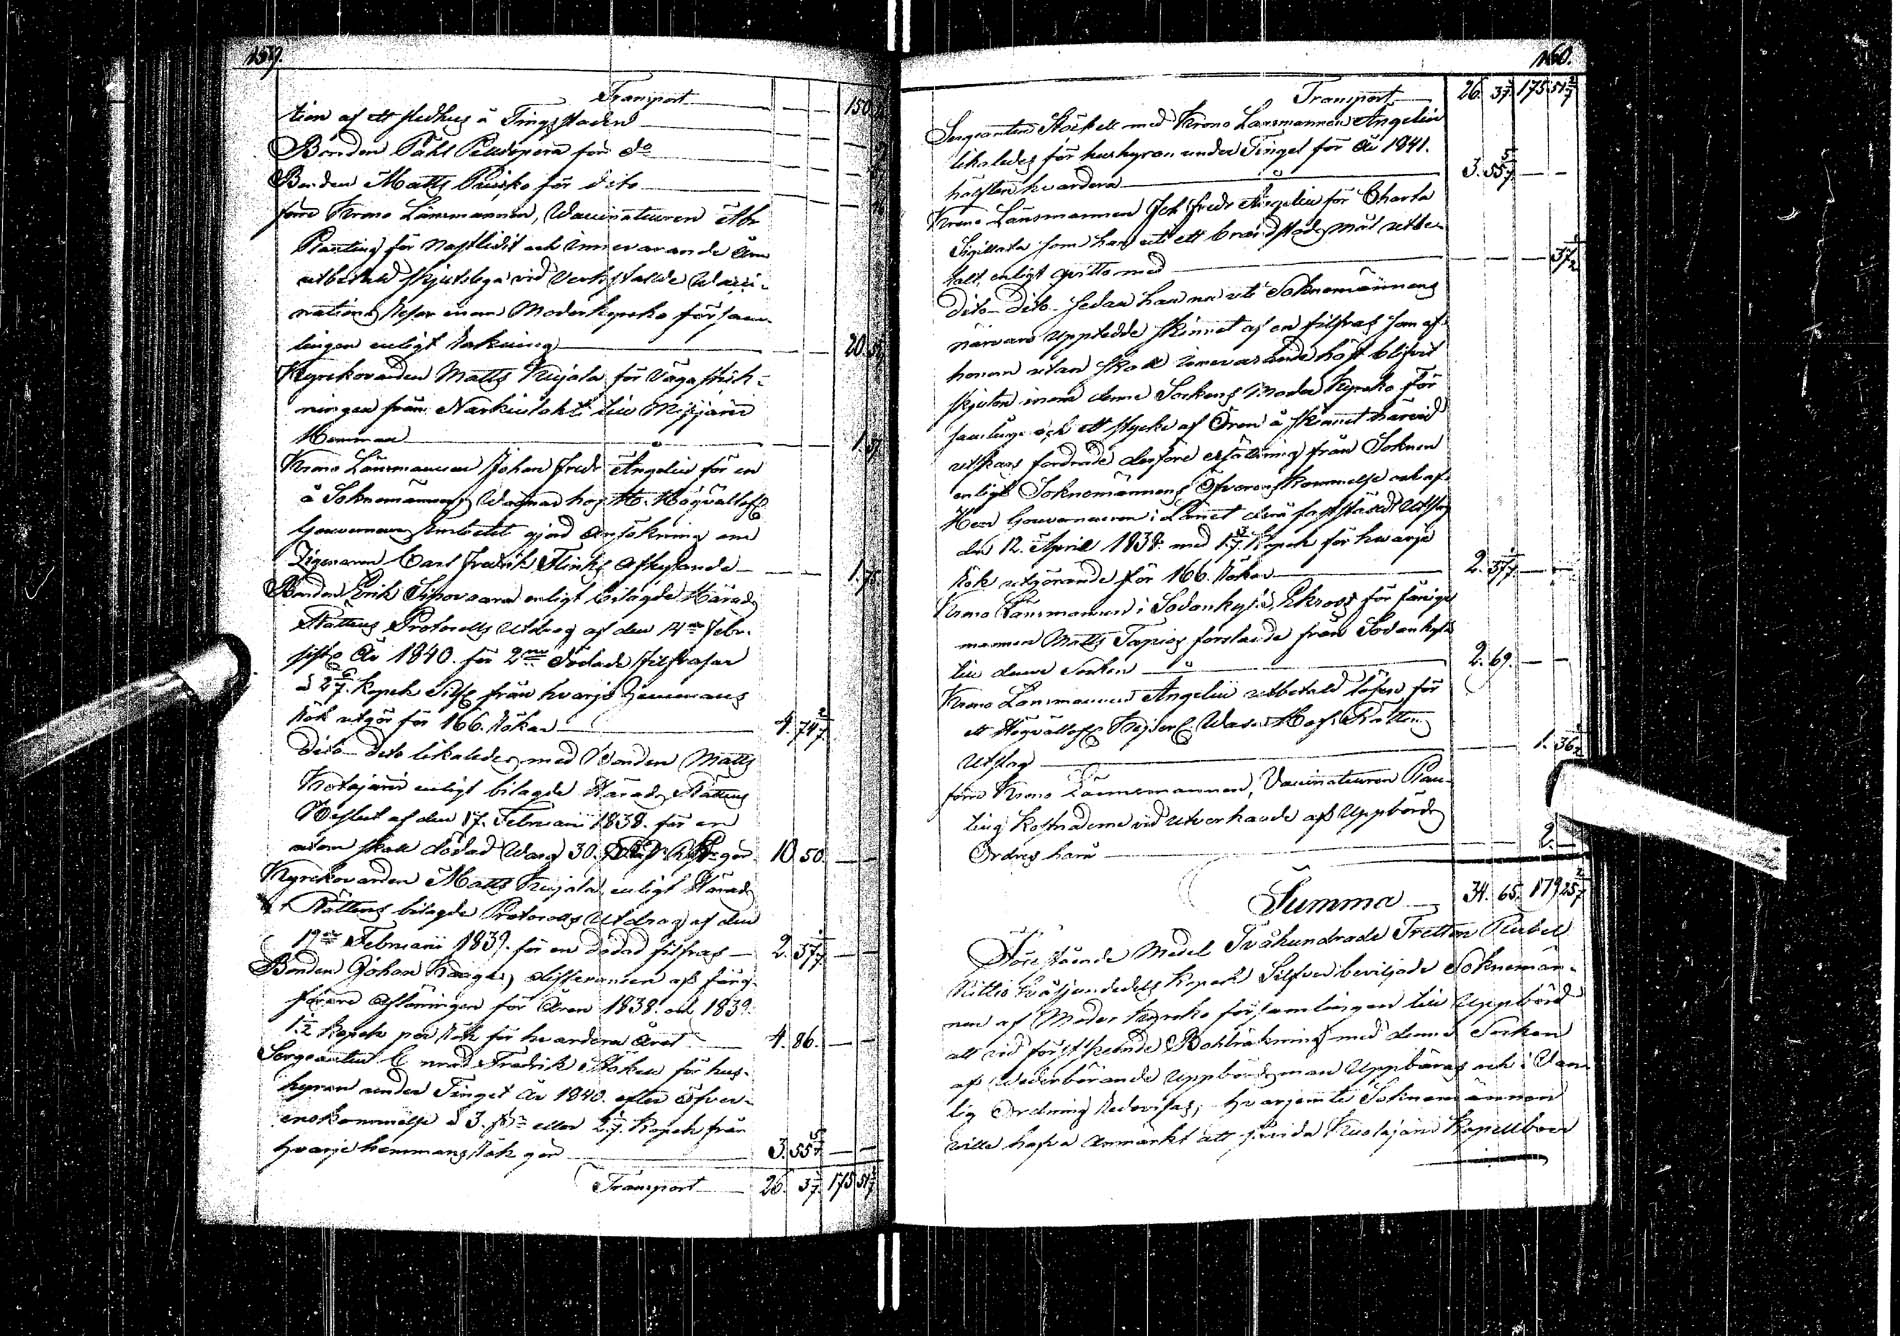 159.
Transport 150
tion af ett stedhus å Tingsstaden
Bonden Påhl for do
Bonden Matts för dito
förre Krono Länsmannen, Vaccinateuren Abr
Planting för nästledit och innevarande År
utbetald skjutslega vid verkstälde Vacci-
nations Resor inom Moderkyrko försam-
lingen enligt Räkning 20.
Kyrkovärden Matts Kujala för
ningen från till
Hemman 1.
Krono Länsmannen Johan Fredr Angelin för en
å Soknemännens Vägnar hos Hr Högvällofl
Gouverneurs Embetet gjord Ansökning om
Zigenaren Carl Fredrik Flinks Afhysande 1. 75.
Bonden Erik Sipovaara enligt bilagde Härads
Rättens Protocolls Utdrag af den 14de Febr.
sistl. År 1840. för 2ne dödade filfrasar
à 2 6/7. Kopek Silf från hvarje Hemmans
Rök utgör för 166. Rökar 4. 74 2/7
Dito dito likaledes med Bonden Matts
Kotajärvi enligt bilagde Härads Rättens
Beslut af den 17. Februarii 1838. för en
utom skall dödad Varg 30. gör 10 50.
Kyrkovärden Matts Kujala enligt Härads
Rättens bilagde Protocolls Utdrag af den
19de Februarii 1839. för en dödad filfras 2. 37 1/7
Bonden Johan differancen af fång-
förare aflöningen för Åren 1838. och 1839.
1 1/2 Kopek per Rök för hvardera Året 4. 86.
Sergeanten Conrad Fredrik Stökell för hus-
hyran under Tinget År 1840. efter öfver-
enskommelse à 3. eller 2 1/7. Kopek från
hvarje hemmans Rök gör 3. 55 5/7
Transport 26. 3/7. 175 51 2/7
160.
Transport 26. 3/7. 175. 51 2/7
Sergeanten Stökell med Krono Länsmannen Angelin
likaledes för hushyran under Tinget för År 1841.
hälften hvardera 3. 55 5/7
Krono Länsmannen Joh Fredr Angelin för Charta
Sigillata som han uti ett brandstods mål utbe-
talt enligt qvitto med 37 1/2
Dito dito sedan han nu uti Soknemännens
närvaro uppvedde skinnet af en filfras som af
honom utan skall innevarande höst blifvit
skjuten inom denne Sockens Moder Kyrko För-
samling och ett stycke af Öron å skinnet härvid
utskars fordrade derföre ersättning från Soknen
enligt Soknemännens Öfverenskommelse och af
Herr Gouverneuren i Länet derå fastställd Utslag
den 12. Aprill 1838. med 1 3/7. Kopek för hvarje
Rök utgörande för 166. Rökar 2. 37 1/7
Krono Länsmannen i Sodankylä, Ekroos för fånige
mannen Matts Tapios forslande från Sodankylä
till denne Socken 2. 69.
Krono Länsmannen Angelin utbetald lösen för
ett Högvällofl Kejserl. Wasa Hof Rättens
Utslag 1. 36 1/2
förre Krono Länsmannen, Vaccinateuren Plan-
ting Kostnaderne vid utverkande af Uppbörds
Ordres härå 2.
Summa 34. 65. 179 25 2/7
Förestående Medel Tvåhundrade Tretton Rubel
Nittio tvåsjundedels Kopek Silfver beviljade Soknemän-
nen af Moder Kyrko församlingen till Uppbörd
att vid först skeende Bokräkning med denne Socken
af Vederbörande Uppbördsman Uppbäras och i Van-
lig Ordning Redovisas, hvarjemte Soknemännen
ville hafva Anmärkt att Kapellboer